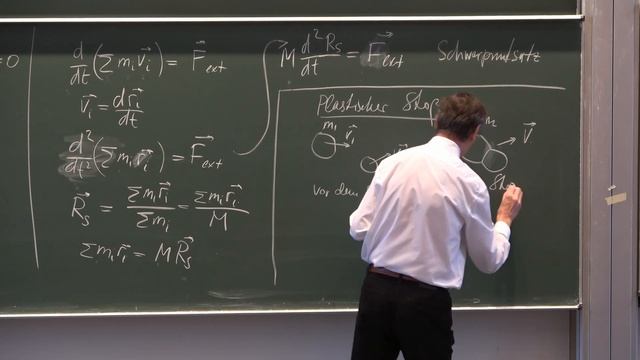 =0
d/dt (Σ mᵢ v⃗ᵢ) = F⃗ext
v⃗ᵢ = dr⃗ᵢ/dt
d²/dt² (Σ mᵢ r⃗ᵢ) = F⃗ext
R⃗s = Σ mᵢ r⃗ᵢ / Σ mᵢ = Σ mᵢ r⃗ᵢ / M
Σ mᵢ r⃗ᵢ = M R⃗s
M d²Rs/dt = F⃗ext Schwerpunktsatz
Plastischer Stoß
m₁ v⃗₁
V⃗
vor dem